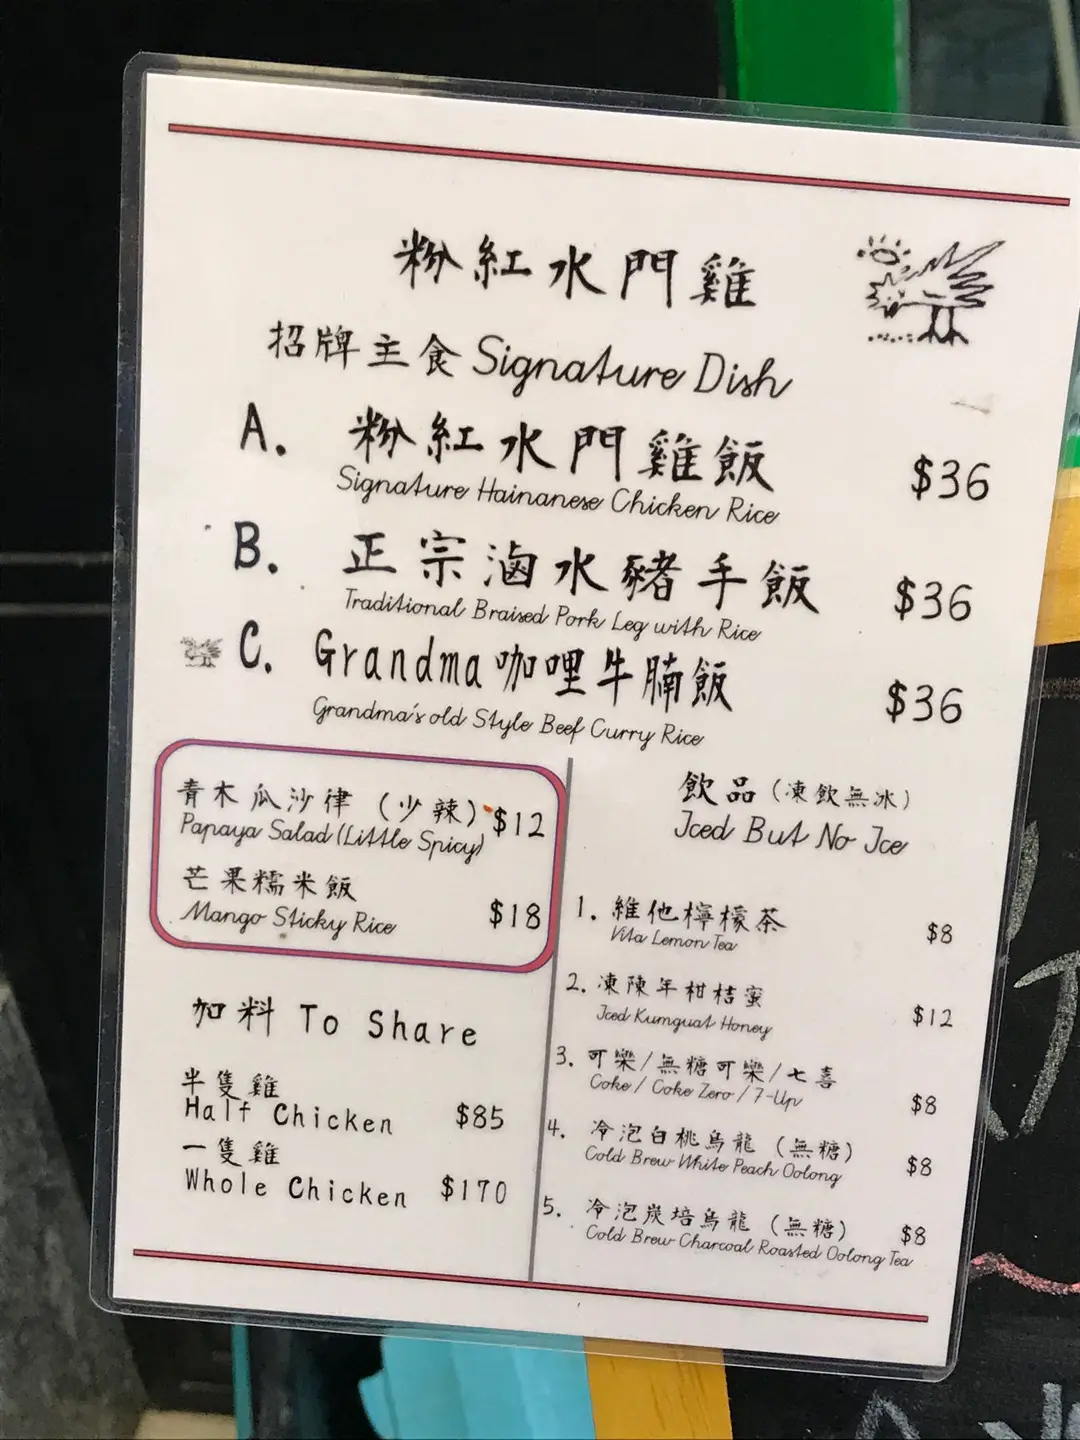 粉紅水門雞
招牌主食 Signature Dish
A. 粉紅水門雞飯 $36
Signature Hainanese Chicken Rice
B. 正宗滷水豬手飯 $36
Traditional Braised Pork Leg with Rice
C. Grandma 咖哩牛腩飯 $36
Grandma's old Style Beef Curry Rice
青木瓜沙律（少辣） $12
Papaya Salad (Little Spicy)
芒果糯米飯
Mango Sticky Rice $18
加料 To Share
半隻雞
Half Chicken $85
一隻雞
Whole Chicken $170
飲品（凍飲無冰）
Iced But No Ice
1. 維他檸檬茶 $8
Vita Lemon Tea
2. 凍陳年柑桔蜜 $12
Iced Kumguat Honey
3. 可樂/無糖可樂/七喜 $8
Coke / Coke Zero / 7-Up
4. 冷泡白桃烏龍（無糖） $8
Cold Brew White Peach Oolong
5. 冷泡炭培烏龍（無糖） $8
Cold Brew Charcoal Roasted Oolong Tea